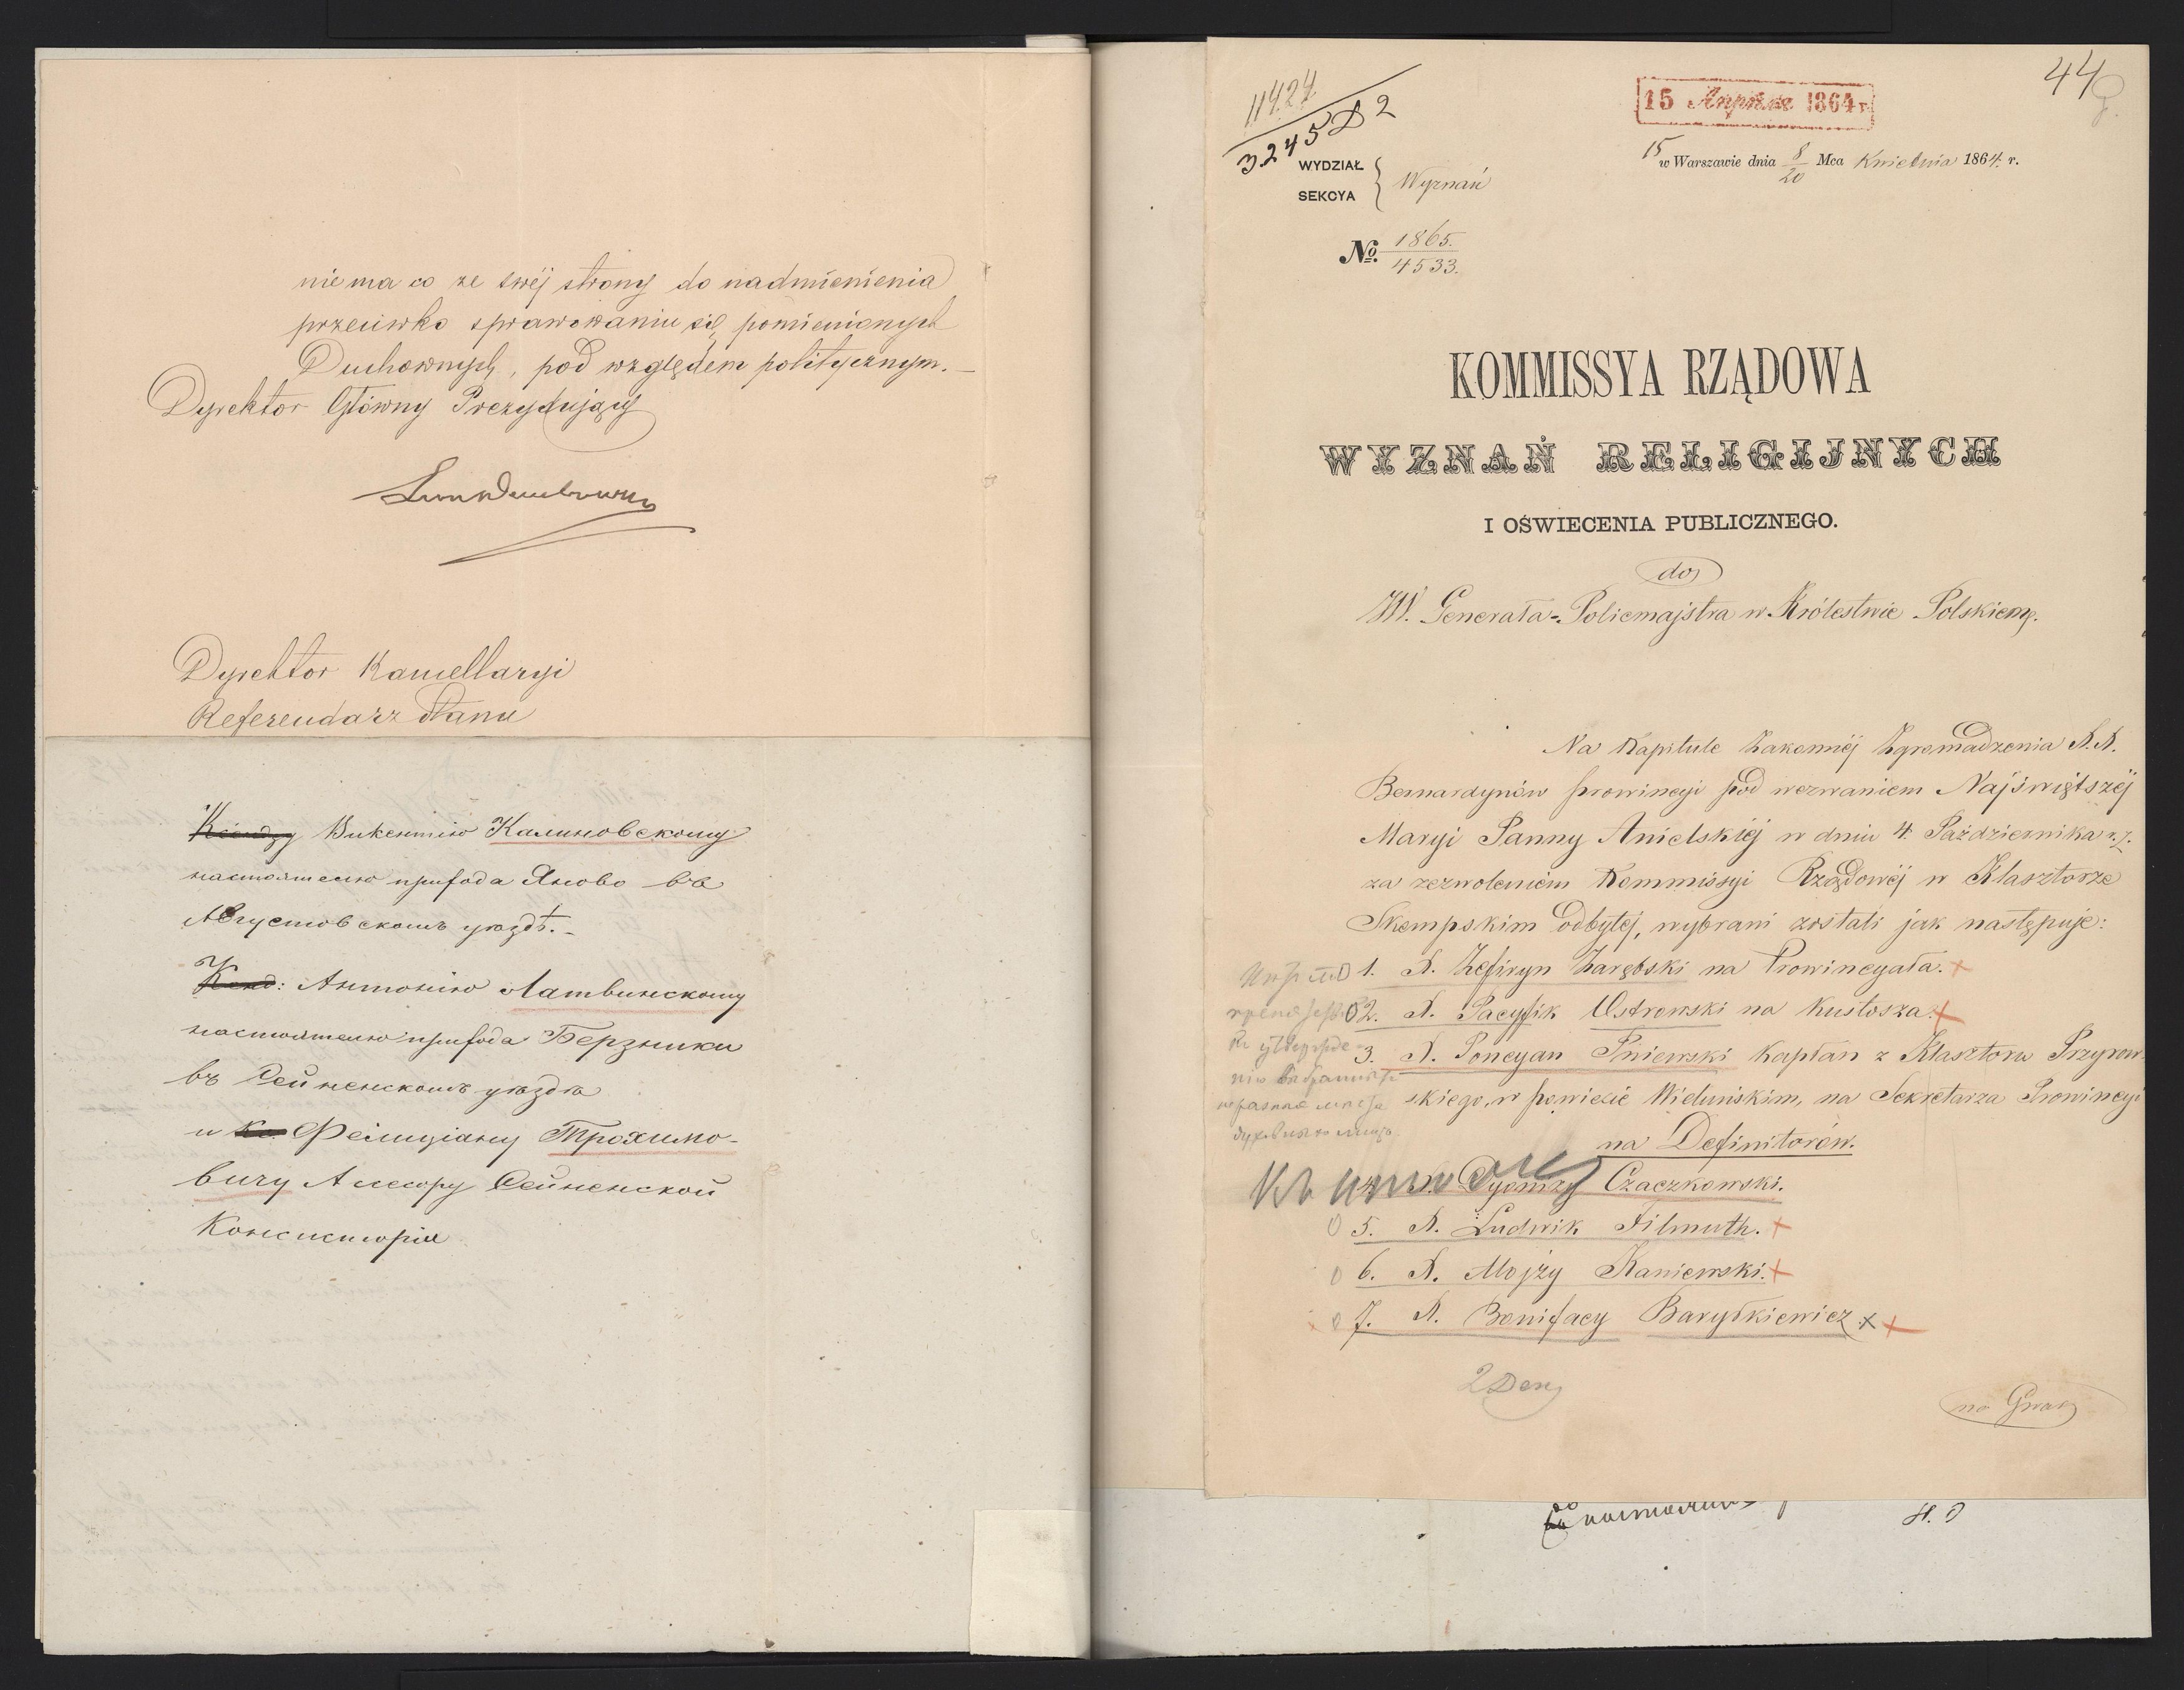 nie ma co ze swéj strony do nadmienienia
przeciwko sprawowaniu się pomienionych
Duchownych, pod względem politycznym. –
Dyrektor Główny Prezydujący
Dyrektor Kancellaryi
Referendarz Stanu
Ксендзу Викентію Калиновскому
настоятелю прихода Яново въ
Августовскомъ уѣздѣ. –
Ксенд: Антонію Латвинскому
настоятелю прихода Берзники
въ Сейненскомъ уѣздѣ
и Кс Фелиціану Трохимо-
вичу Ассесору Сейненской
Консисторіи
44
11424
3245 D 2
15 Апрѣля 1864 г.
15
w Warszawie dnia 8/20 Mca Kwietnia 1864. r.
WYDZIAŁ
SEKCYA
Wyznań
No. 1865.
4533.
KOMMISSYA RZĄDOWA
WYZNAŃ RELIGIJNYCH
I OŚWIECENIA PUBLICZNEGO.
do
JW. Generała-Policmajstra w Królestwie Polskiem.
Na Kapitule Zakonnéj Zgromadzenia X.X.
Bernardynów prowincyi pod wezwaniem Najświętszéj
Maryi Panny Anielskiéj w dniu 4. Października r.z.
za zezwoleniem Kommissyi Rządowéj w Klasztorze
Skempskim odbytéj, wybrani zostali jak następuje:
1. X. Zefiryn Zarębski na Prowincyała.
2. X. Pacyfik Ostrowski na Kustosza.
3. X. Poncyan Pniewski Kapłan z Klasztoru Przyrow-
skiego, w powiecie Wieluńskim, na Sekretarza Prowincyi
na Definitorów.
4. X. Dyonizy Czaczkowski.
5. X. Ludwik Filmuth.
6. X. Mojży Kaniewski.
7. X. Bonifacy Baryłkiewicz.
na Gwar
Н. О